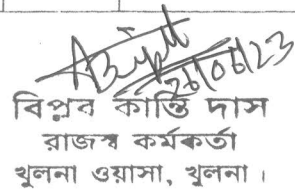 26/06/23
বিপ্লব কান্তি দাস
রাজস্ব কর্মকর্তা
খুলনা ওয়াসা, খুলনা।